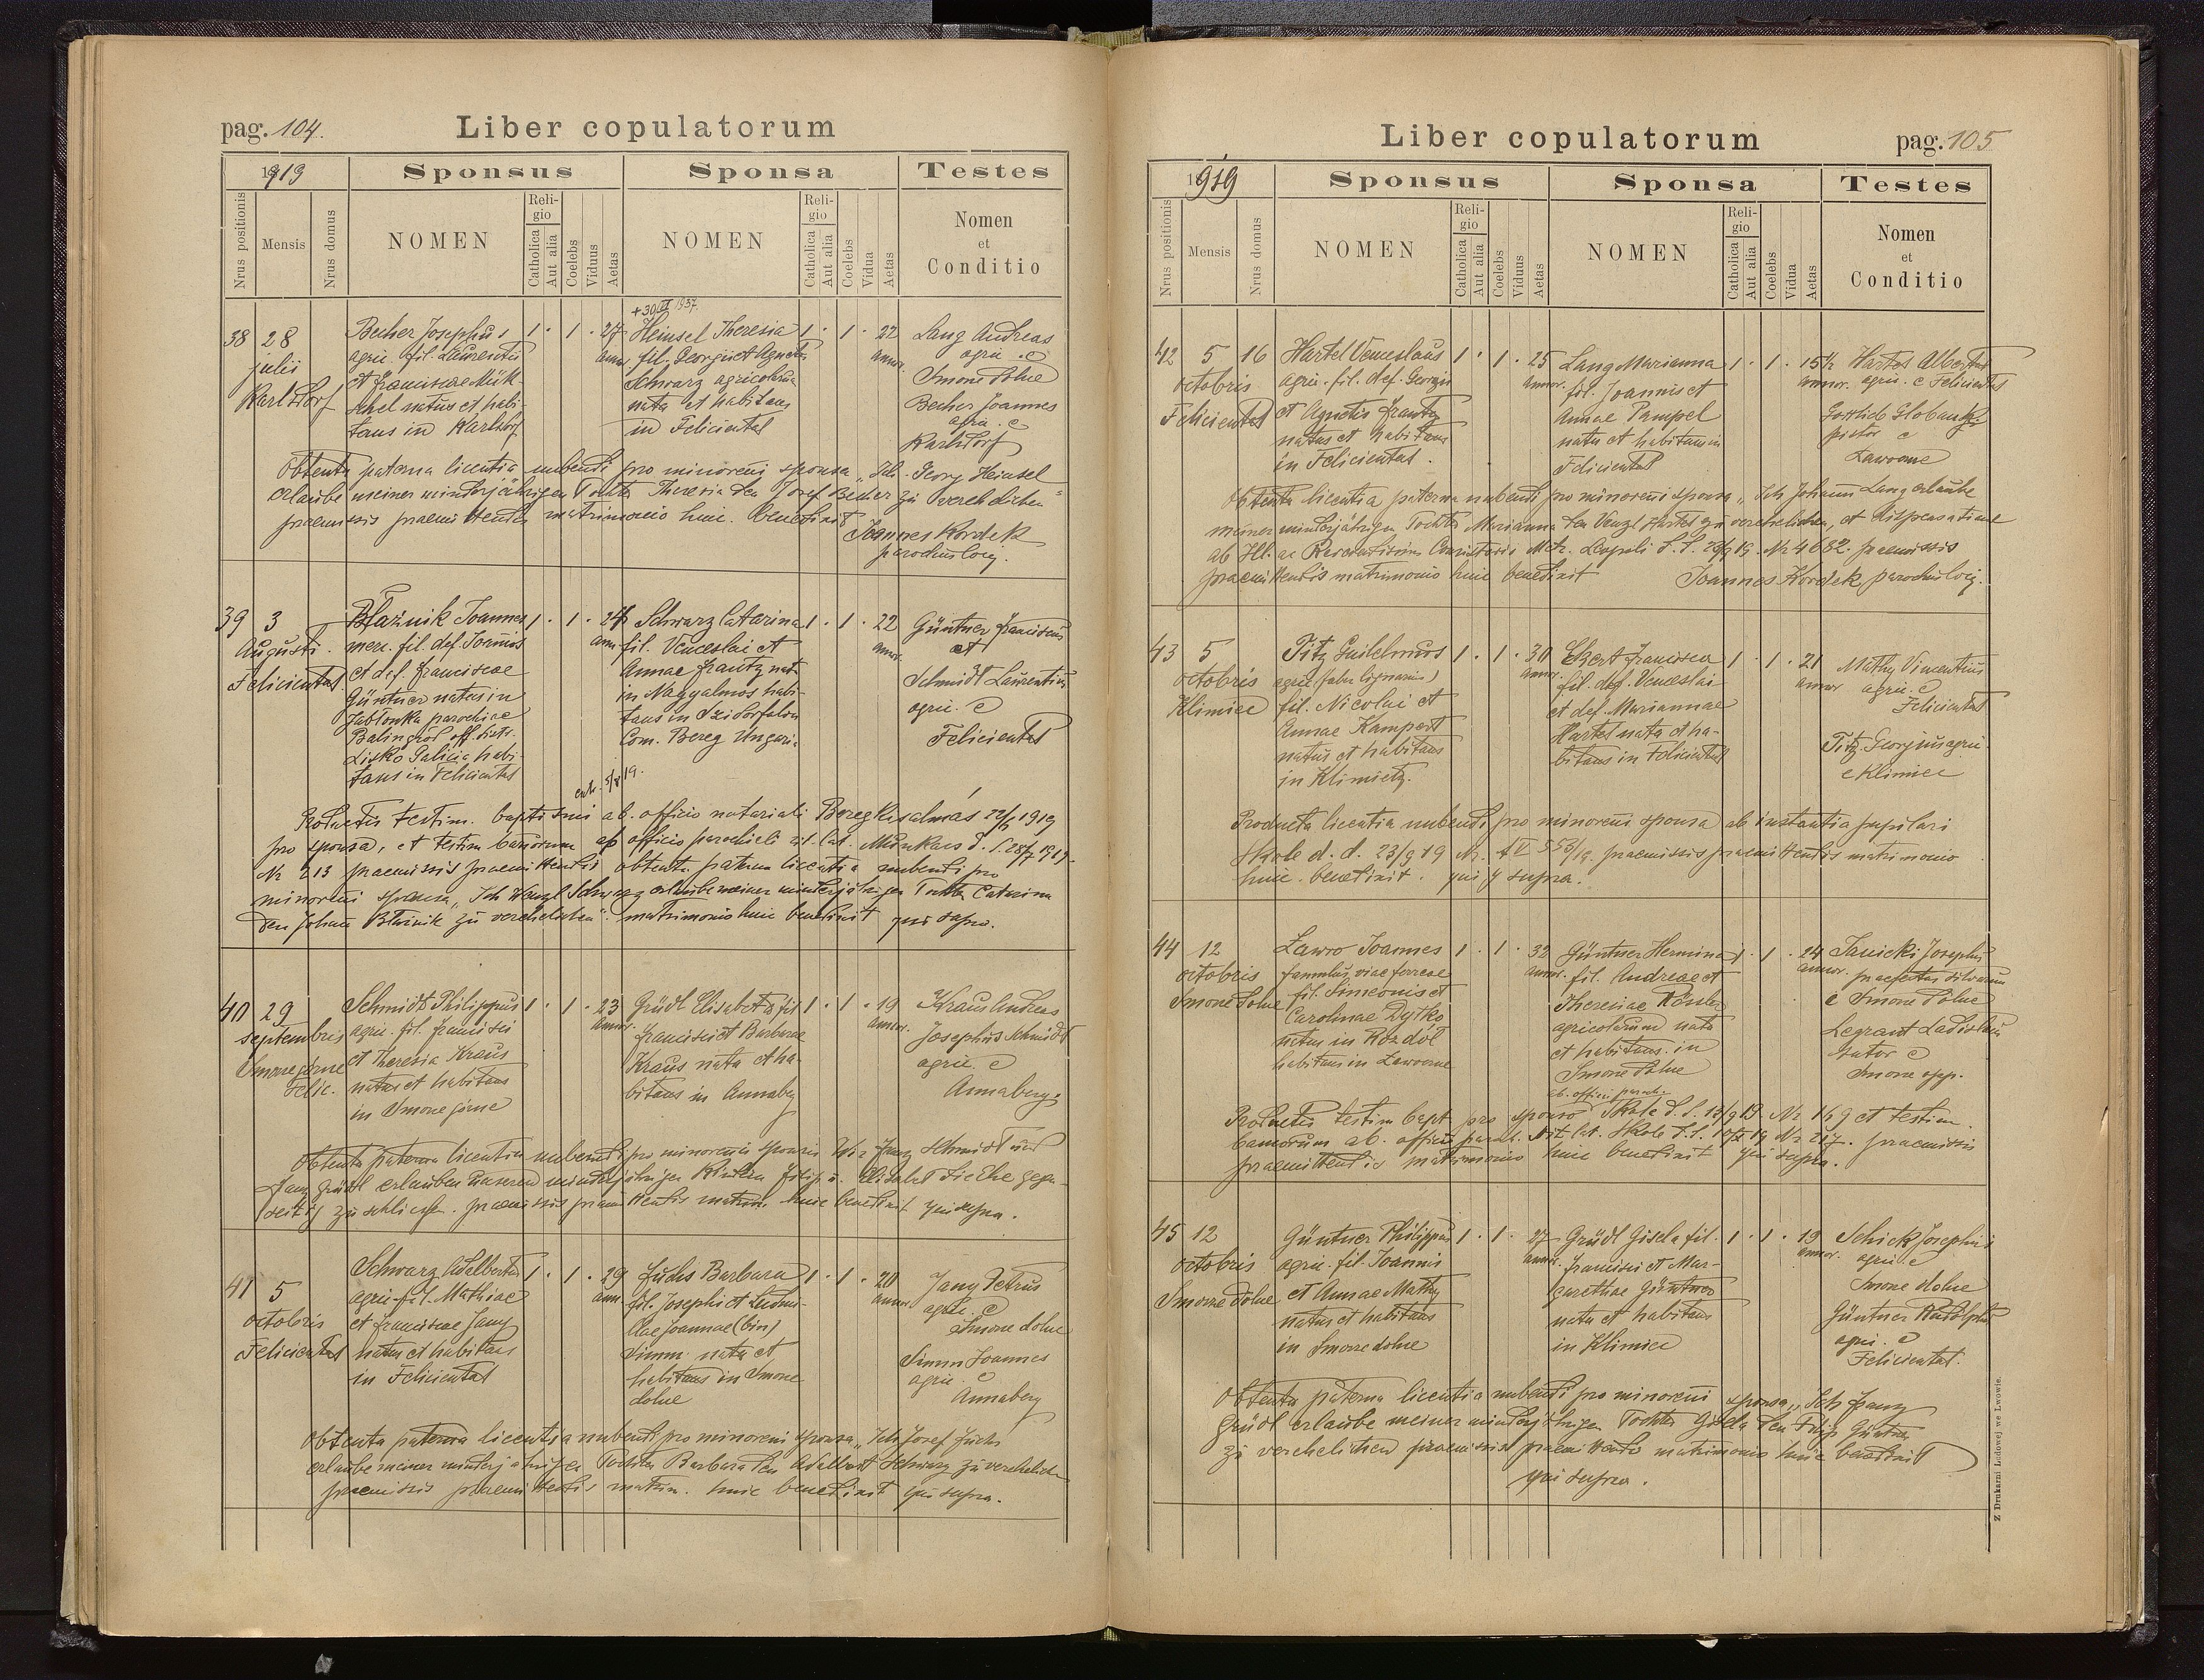 pag. 104.
Liber copulatorum
1919
Sponsus
Sponsa
Testes
Nrus positionis
Mensis
Nrus domus
NOMEN
Religio
Catholica
Aut alia
Coelebs
Viduus
Aetas
NOMEN
Religio
Catholica
Aut alia
Coelebs
Vidua
Aetas
Nomen
et
Conditio
38 28
julii
Karlsdorf
Becher Josephus
agric. fil. Laurentii
et Franciscae Mük-
schel natus et habi-
tans in Karlsdorf
1 . 1 . 27
annor.
1937
Heinsel Theresia
fil. Georgii et Agnetis
Schwarz agricolarum
nata et habitans
in Felicientel
1 . 1 . 22
annor.
Lang Andreas
agric. e
Smorze dolne
Becher Joannes
agric. e
Karlsdorf
Obtenta paterna licentia nubendi pro minoreni sponsa „Ich Georg Heinsel
erlaube meiner minderjährigen Tochter Theresia den Josef Becher zu verehelichen"
praemissis praemittendis matrimonio huic benedixit
Joannes Kordek
parochus loci.
39 3
Augusti
Felicientel
Błaźnik Joannes
merc. fil. def. Joannis
et def. Franciscae
Güntner natus in
Jabłonka parochiae
Balingród off. distr.
Lisko Galicia habi-
tans in Felicientel
1 . 1 . 24
ann.
Schwarz Catarina
fil. Venceslai et
Annae Frantz nat.
in Nagyalmos habi-
tans in Szidorfalva
Com. Bereg Ungaria
1 . 1 . 22
annor.
Güntner Franciscus
et
Schmidt Laurentius
agric. e
Felicientel
5/8 19.
Productis testim. baptismi ab officio notariali Bereg Kisalmás 22/7 1919
pro sponsa, et testim bannorum ab officio parochiali rit. lat. Munkacs d. d. 28/7 1919
Nr 213 praemissis praemittendis obtenta paterna licentia nubendi pro
minoreni sponsa „Ich Wenzl Schwarz erlaube meiner minderjährigen Tochter Catarina
den Johann Blaźnik zu verehelichen" matrimonio huic benedixit qui supra.
40 29
septembris
Smorze górne
Felic.
Schmidt Philippus
agric. fil. Francisci
et Theresia Kraus
natus et habitans
in Smorze górne
1 . 1 . 23
annor.
Grüdl Elisabeth fil
Francisci et Barbarae
Kraus nata et ha-
bitans in Annaberg
1 . 1 . 19
annor.
Kraus Andreas
Josephus Schmidt
agric. e
Annaberg.
Obtenta paterna licentia nubendi pro minorenis sponsis Wir Franz Schmidt und
Franz Grüdl erlauben unseren minderjährigen Kindern Filip u. Elisabet die Ehe gegen-
seitig zu schliessen. praemissis praemittendis matrim. huic benedixit qui supra.
41 5
octobris
Felicientel
Schwarz Adelbertus
agric. fil. Mathiae
et Franciscae Jany
natus et habitans
in Felicientel
1 . 1 . 29
ann.
Fuchs Barbara
fil. Josephi et Ludmi-
llae Joannae (bin)
Simm nata et
habitans in Smorze
dolne
1 . 1 . 20
annor.
Jany Petrus
agric. e
Smorze dolne
Simm Joannes
agric. e
Annaberg
Obtenta paterna licentia nubendi pro minoreni sponsa „Ich Josef Fuchs
erlaube meiner minderjährigen Tochter Barbara den Adalbert Schwarz zu verehelichen
praemissis praemittendis matrim. huic benedixit qui supra.
Liber copulatorum
pag. 105
1919
Sponsus
Sponsa
Testes
Nrus positionis
Mensis
Nrus domus
NOMEN
Religio
Catholica
Aut alia
Coelebs
Viduus
Aetas
NOMEN
Religio
Catholica
Aut alia
Coelebs
Vidua
Aetas
Nomen
et
Conditio
42 5 16
octobris
Felicientel
Hartel Venceslaus
agric. fil. def. Georgii
et Agnetis Frantz
natus et habitans
in Felicientel.
1 . 1 . 25
annor.
Lang Marianna
fil. Joannis et
Annae Pampel
nata et habitans in
Felicientel
1 . 1 . 15½
annor.
Hartel Albertus
agric. e Felicientel
Gottlieb
pistor e
Lawoczne
Obtenta licentia paterna nubendi pro minoreni sponsa „Ich Johann Lang erlaube
meiner minderjährigen Tochter Marianna den Venzl Hartel zu verehelichen, et dispensatione
ab Ill. ac Reverendissimo Consistorio Metr. Leopoli d. d. 29/9 19. Nr 4682. praemissis
praemittendis matrimonio huic benedixit Joannes Kordek parochus loci.
43 5
octobris
Klimiec
Titz Guilelmus
agric (faber lignarius)
fil. Nicolai et
Annae Kampert
natus et habitans
in Klimietz.
1 . 1 . 30
annor.
Ekert Francisca
fil. def. Venceslai
et def. Mariannae
Hartel nata et ha-
bitans in Felicientel
1 . 1 . 21
annor
Mathy Vincentius
agric. e
Felicientel
Titz Georgius agric
e Klimiec
Producta licentia nubendi pro minoreni sponsa ab instantia pupilari
Skole d. d. 23/9 19 Nr. praemissis praemittendis matrimonio
huic benedixit. qui supra.
44 12
octobris
Smorze dolne
Lawro Joannes
famulus viae ferreae
fil. Simeonis et
Carolinae Dytko
natus in Rozdół
habitans in Lawoczne
1 . 1 . 32
annor.
Güntner Hermina
fil. Andreae et
Theresiae Rössler
agricolarum nata
et habitans in
Smorze dolne
1 . 1 . 24
annor.
Janicki Josephus
praefectus silvarum
e Smorze dolne
Legrant Ladislaus
sutor e
Smorze opp.
ab. officii paroch.
Productis testim bapt pro sponso Skole d. d. 13/9 19 Nr 169 et testim.
bannorum ab. officii paroch. rit. lat. Skole d. d. Nr 217. praemissis
praemittendis matrimonio huic benedixit qui supra.
45 12
octobris
Smorze dolne
Güntner Philippus
agric. fil. Joannis
et Annae Mathy
natus et habitans
in Smorze dolne
1 . 1 . 27
annor.
Grüdl Gisela fil.
Francisci et Mar-
garethae Güntner
nata et habitans
in Klimiec
1 . 1 . 19
annor.
Schick Josephus
agric. e
Smorze dolne
Güntner Rudolphus
agric. e
Felicientel.
Obtenta paterna licentia nubendi pro minoreni sponsa „Ich Franz
Grüdl erlaube meiner minderjährigen Tochter Gisela den Filip Güntner
zu verehelichen praemissis praemittendis matrimonio huic benedixit
qui supra.
Z Drukarni Ludowej we Lwowie.